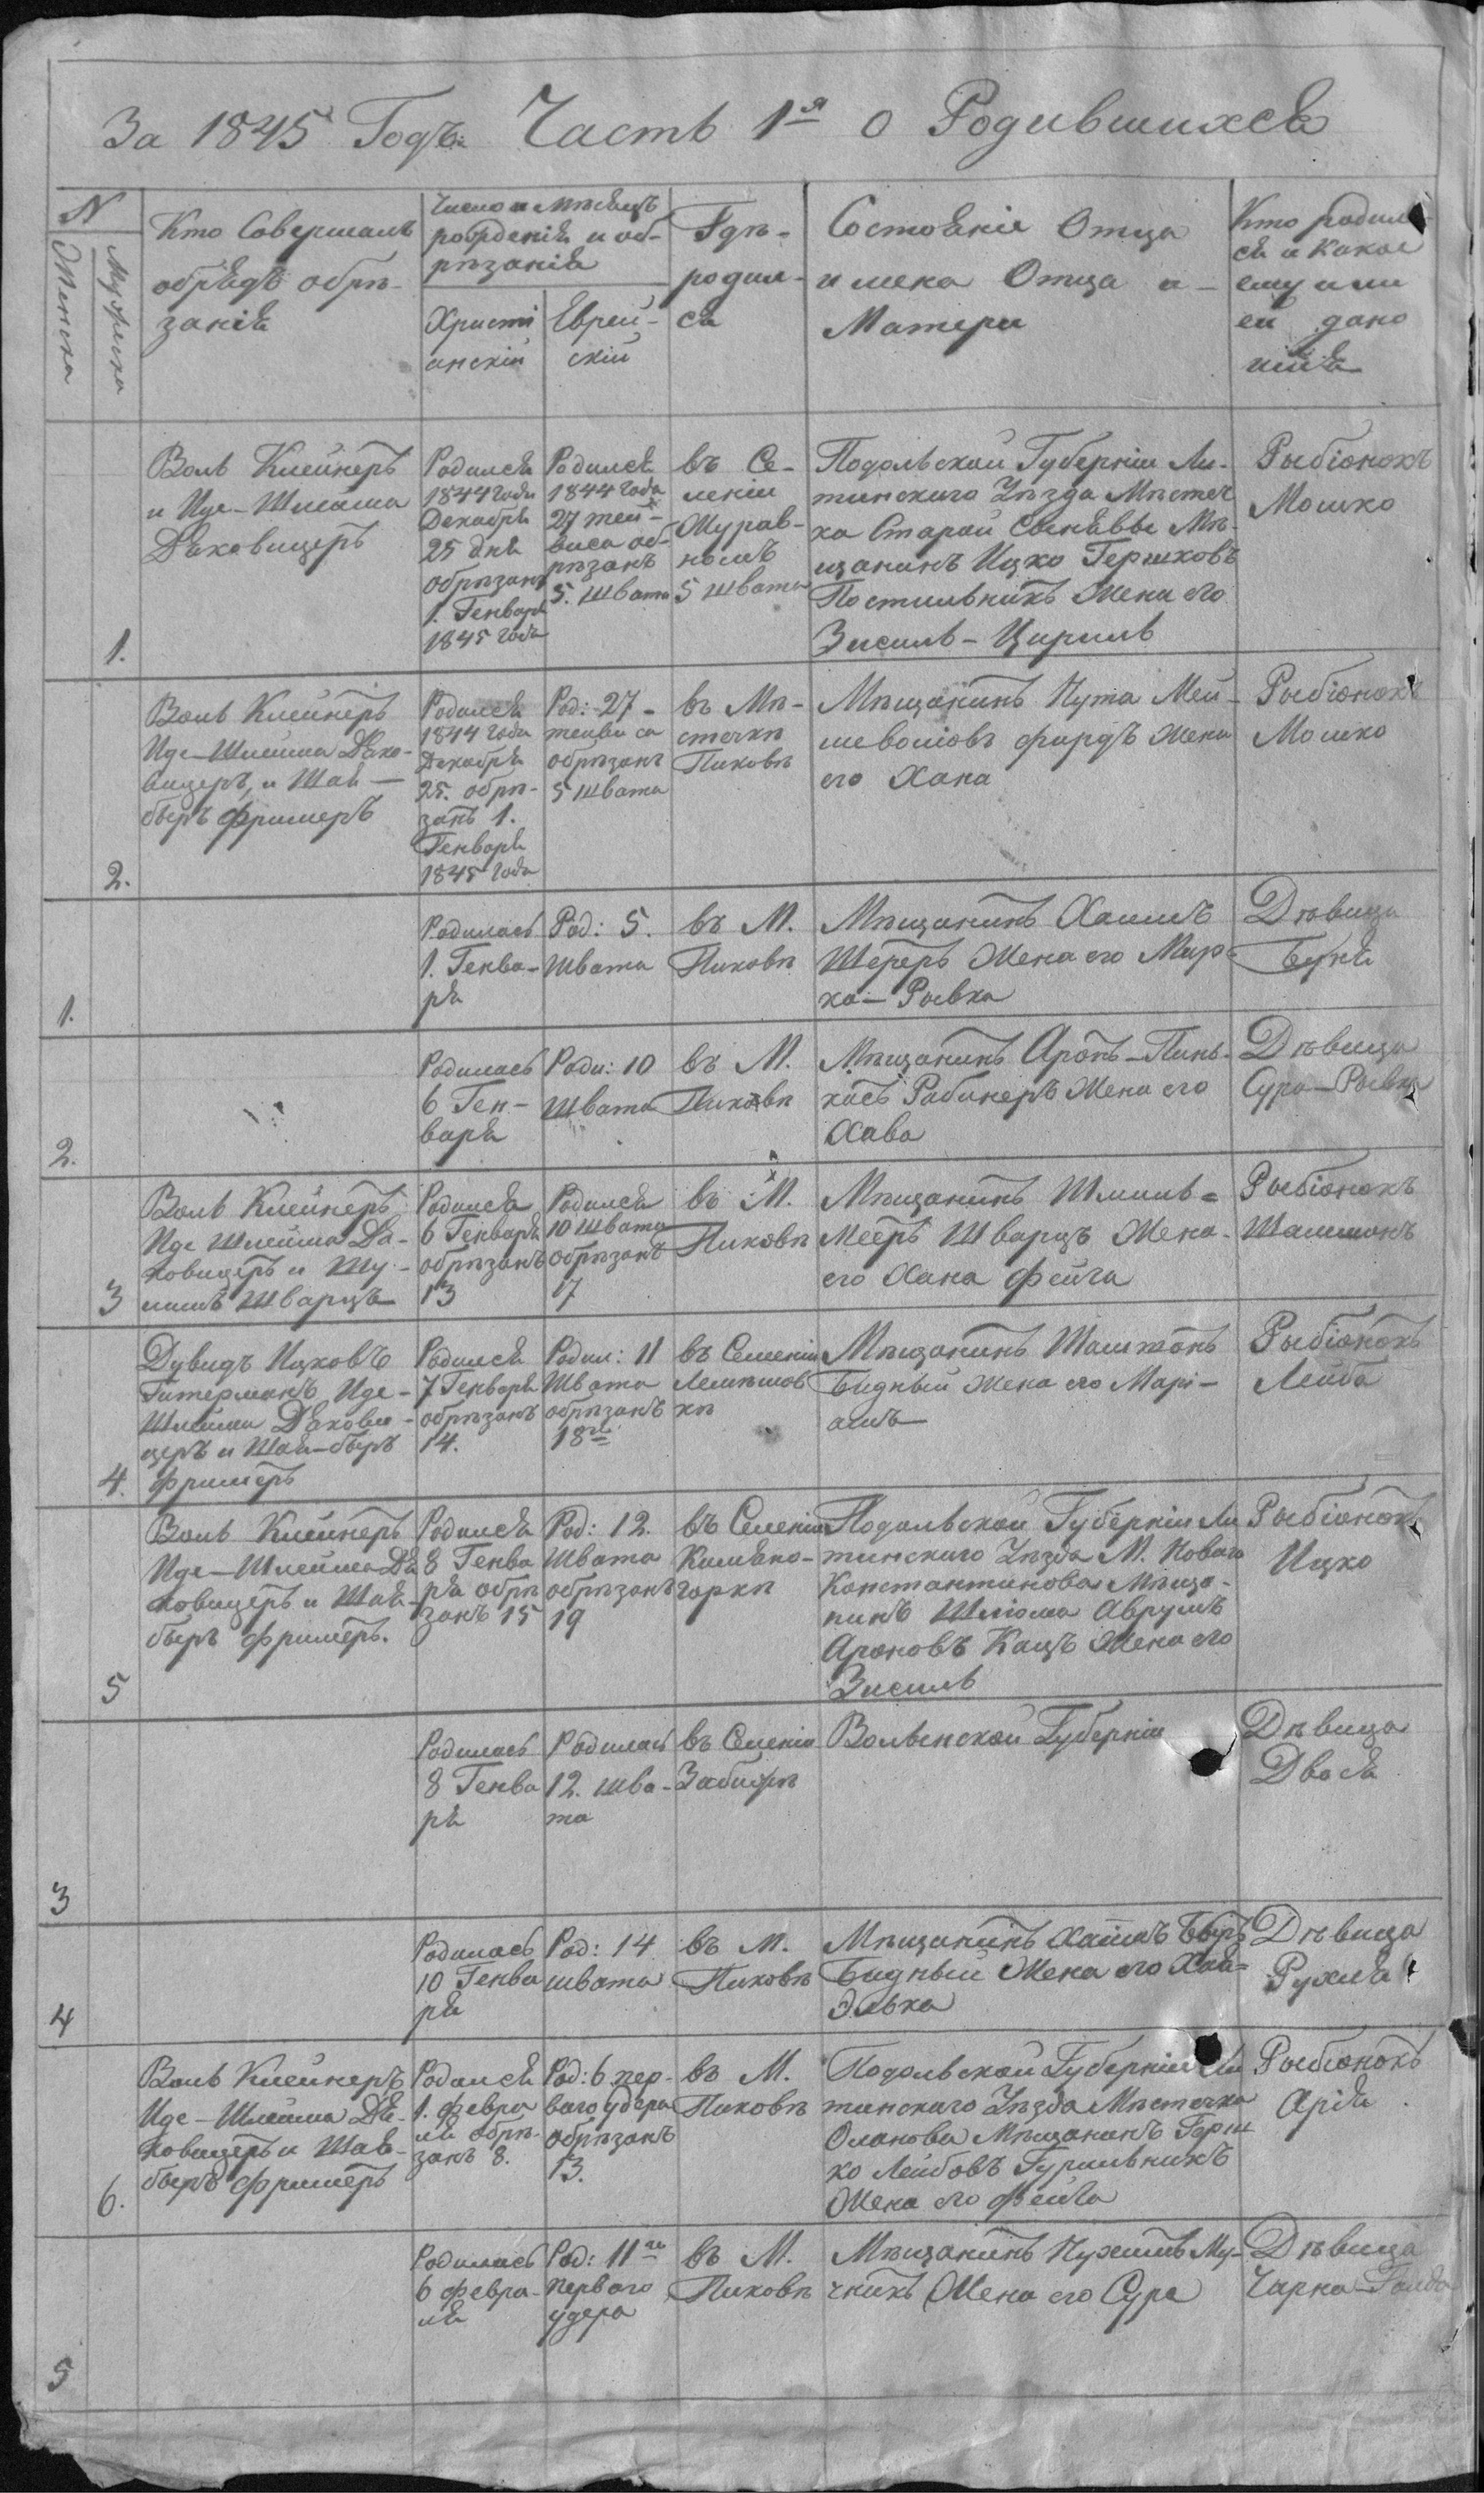 За 1845 Годъ: Часть 1я о Родившихся
N
Женска
Мужеска
Кто Совершалъ
обрядъ обрѣ-
занія
Число и мѣсяцъ
рождения и об-
рѣзанія
Христі
анскій
Еврей-
скій
Гдѣ-
родил-
ся
Состояніе Отца
и мена Отца и-
Матери
Кто родил-
ся и какое
ему или
ей дано
имя
1.
Воль Клейнеръ
и Иде-Шлейма
Дяковицеръ
Родился
1844 года
Декабря
25 дня
обрѣзанъ
1. Генваря
1845 года
Родился
1844 года
27 тей-
виса об-
рѣзанъ
5. Швата
въ Се-
леніи
Журав-
номъ
5 Швата
Подольской Губерніи Ли-
тинскаго Уѣзда Мѣстеч
ка Старой Сенявы Мѣ-
щанинъ Ицко Гершковъ
Постильникъ Жена его
Зисель-Цириль
Рыбіонокъ
Мошко
2.
Воль Клейнеръ
Иде-Шлейма Дяко-
вицеръ, и Шая-
беръ Фримеръ
Родился
1844 года
Декабря
25. обрѣ-
занъ 1.
Генваря
1845 года
Род: 27-
тейвиса
обрѣзанъ
5 Швата
въ Мѣ-
стечкѣ
Пиковѣ
Мѣщанинъ Нута Мей-
шеволіовъ фурдъ Жена
его Хана
Рыбіонокъ
Мошко
1.
Родилась
1. Генва-
ря
Род: 5.
Швата
въ М.
Пиковѣ
Мѣщанинъ Хаимъ
Шереръ Жена его Мир-
ка-Рывка
Дѣвица
Буня
2.
Родилась
6 Ген-
варя
Роди: 10
Швата
въ М.
Пиковѣ
Мѣщанинъ Аронъ-Пинь-
касъ Рабинеръ Жена его
Хава
Дѣвица
Сура-Рывка
3
Воль Клейнеръ
Иде Шлейма Дя-
ковицеръ и Шу-
лимъ Шварцъ
Родился
6 Генваря
обрѣзанъ
13
Родился
10 Швата
обрѣзанъ
17
въ М.
Пиковѣ
Мѣщанинъ Шмиль-
Мееръ Шварцъ Жена-
его Хана Фейга
Рыбіонокъ
Шлимонъ
4.
Дувидъ Ицковъ
Гитерманъ Иде-
Шлейма Дякови-
церъ и Шая-беръ
Фримеръ
Родился
7 Генваря
обрѣзанъ
14.
Родил: 11
Швата
обрѣзанъ
18го
въ Селеніи
Лемешов
кѣ
Мѣщанинъ Шлиожонъ
Бидный жена его Марі-
амъ
Рыбіонокъ
Лейба
5
Воль Клейнеръ
Иде-Шлейма Дя
ковицеръ и Шая-
беръ Фримеръ.
Родился
8 Генва
ря обрѣ
занъ 15
Род: 12.
Швата
обрѣзанъ
19
въ Селеніи
Камяно-
горкѣ
Подольской Губерніи Ли
тинскаго Уѣзда М. Новаго
Константинова Мѣща-
нинъ Шліома Аврумъ
Ароновъ Кацъ Жена его
Зисель
Рыбіонокъ
Ицко
3
Родилась
8 Генва
ря
Родилась
12. шва-
та
въ Селеніи
Забужѣ
Волынской Губерніи
Дѣвица
Двося
4
Родилась
10 Генва
ря
Род: 14
швата
въ М.
Пиковѣ
Мѣщанинъ Хаимъ Беръ
Бидный Жена его Хая-
Элька
Дѣвица
Рухля
6.
Воль Клейнеръ
Иде-Шлейма Дя-
ковицеръ и Шая-
беръ Фримеръ
Родился
1. февра
ля обрѣ-
занъ 8.
Род: 6 пер-
ваго удера
обрѣзанъ
13.
въ М.
Пиковѣ
Подольской Губерніи Ли
тинскаго Уѣзда Мѣстечка
Оланова Мѣщанинъ Герш
ко Лейбовъ Гуральникъ
Жена его Фейга
Рыбіонокъ
Арія
5
Родилась
6 февра-
ля
Род: 11го
перваго
удера
въ М.
Пиковѣ
Мѣщанинъ Нухимъ Му-
чникъ Жена его Сура
Дѣвица
Чарна-Голда